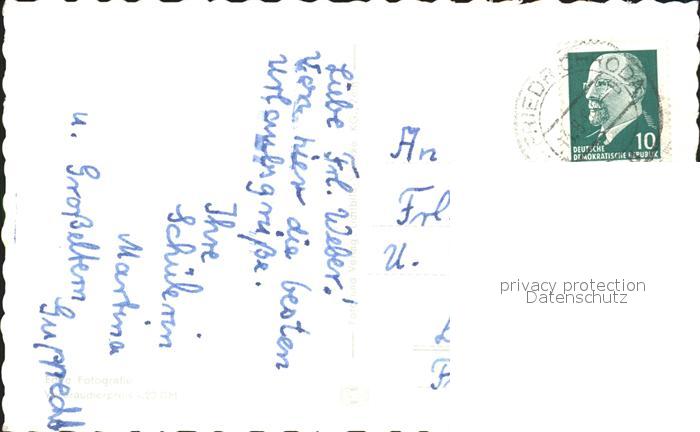 Liebe Frl. Weber!
Von hier die besten
Urlaubsgrüße.
Ihre
Schülerin
Martina
u. Großeltern
An
Frl.
U.
FRIEDRICHRODA
10
DEUTSCHE
DEMOKRATISCHE REPUBLIK
privacy protection
Datenschutz
Echt Fotografie